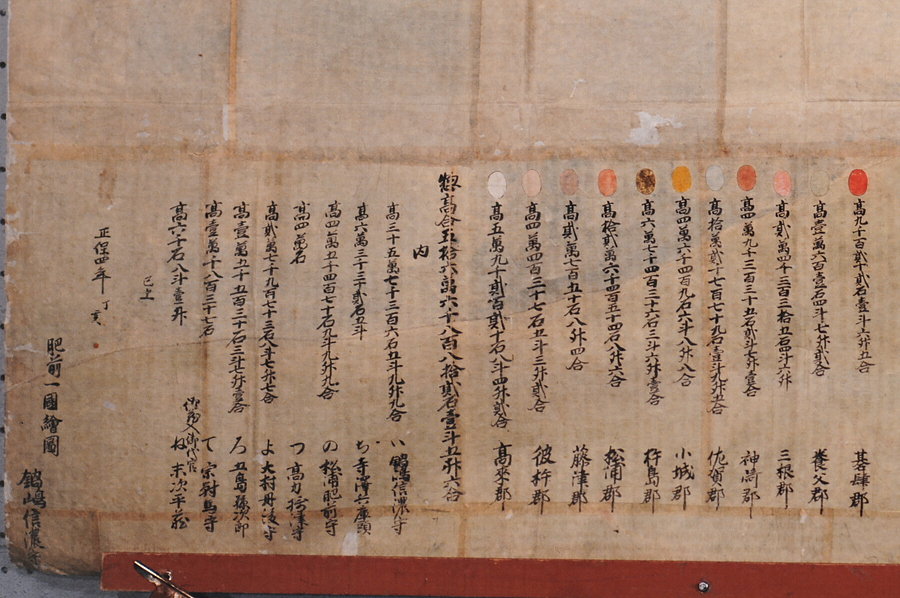 高九千百貳十貳石壹斗六升五合 基肄郡
高壹萬六百壹石四斗七升貳合 養父郡
高貳萬四千三百三拾五石四斗六升 三根郡
高四萬九千三百三十五石貳斗七升壹合 神崎郡
高拾萬貳千七百七十九石壹斗九升五合 佐賀郡
高四萬六千四百九石六斗八升八合 小城郡
高六萬七千四百三十六石三斗六升壹合 杵島郡
高拾貳萬六千四百五十四石八升六合 松浦郡
高貳萬七百五十石八升四合 藤津郡
高四萬四百三十七石五斗三升貳合 彼杵郡
高五萬九千貳百貳十石八斗四升貳合 高来郡
惣高合五拾六萬六千八百八拾貳石壹斗五升六合
内
高三十五萬七千三百六石五斗九升九合 い 鍋嶋信濃守
高六萬三千三十貳石五斗 ち 寺澤六
高四萬五千四百七十石九斗九升九合 の 松浦肥前守
高四萬石 つ 高力摂津守
高貳萬七千九百七十三石四斗七升七合 よ 大村丹後守
高壹萬五千五百三十石三斗七升壹合 ろ 五島孫次郎
高壹萬千八百三十七石 て 宗対馬守
高六千石八斗壹升 御蔵入御代官 ね 末次平蔵
已上
正保四年 丁亥
肥前一國繪圖
鍋嶋信濃守